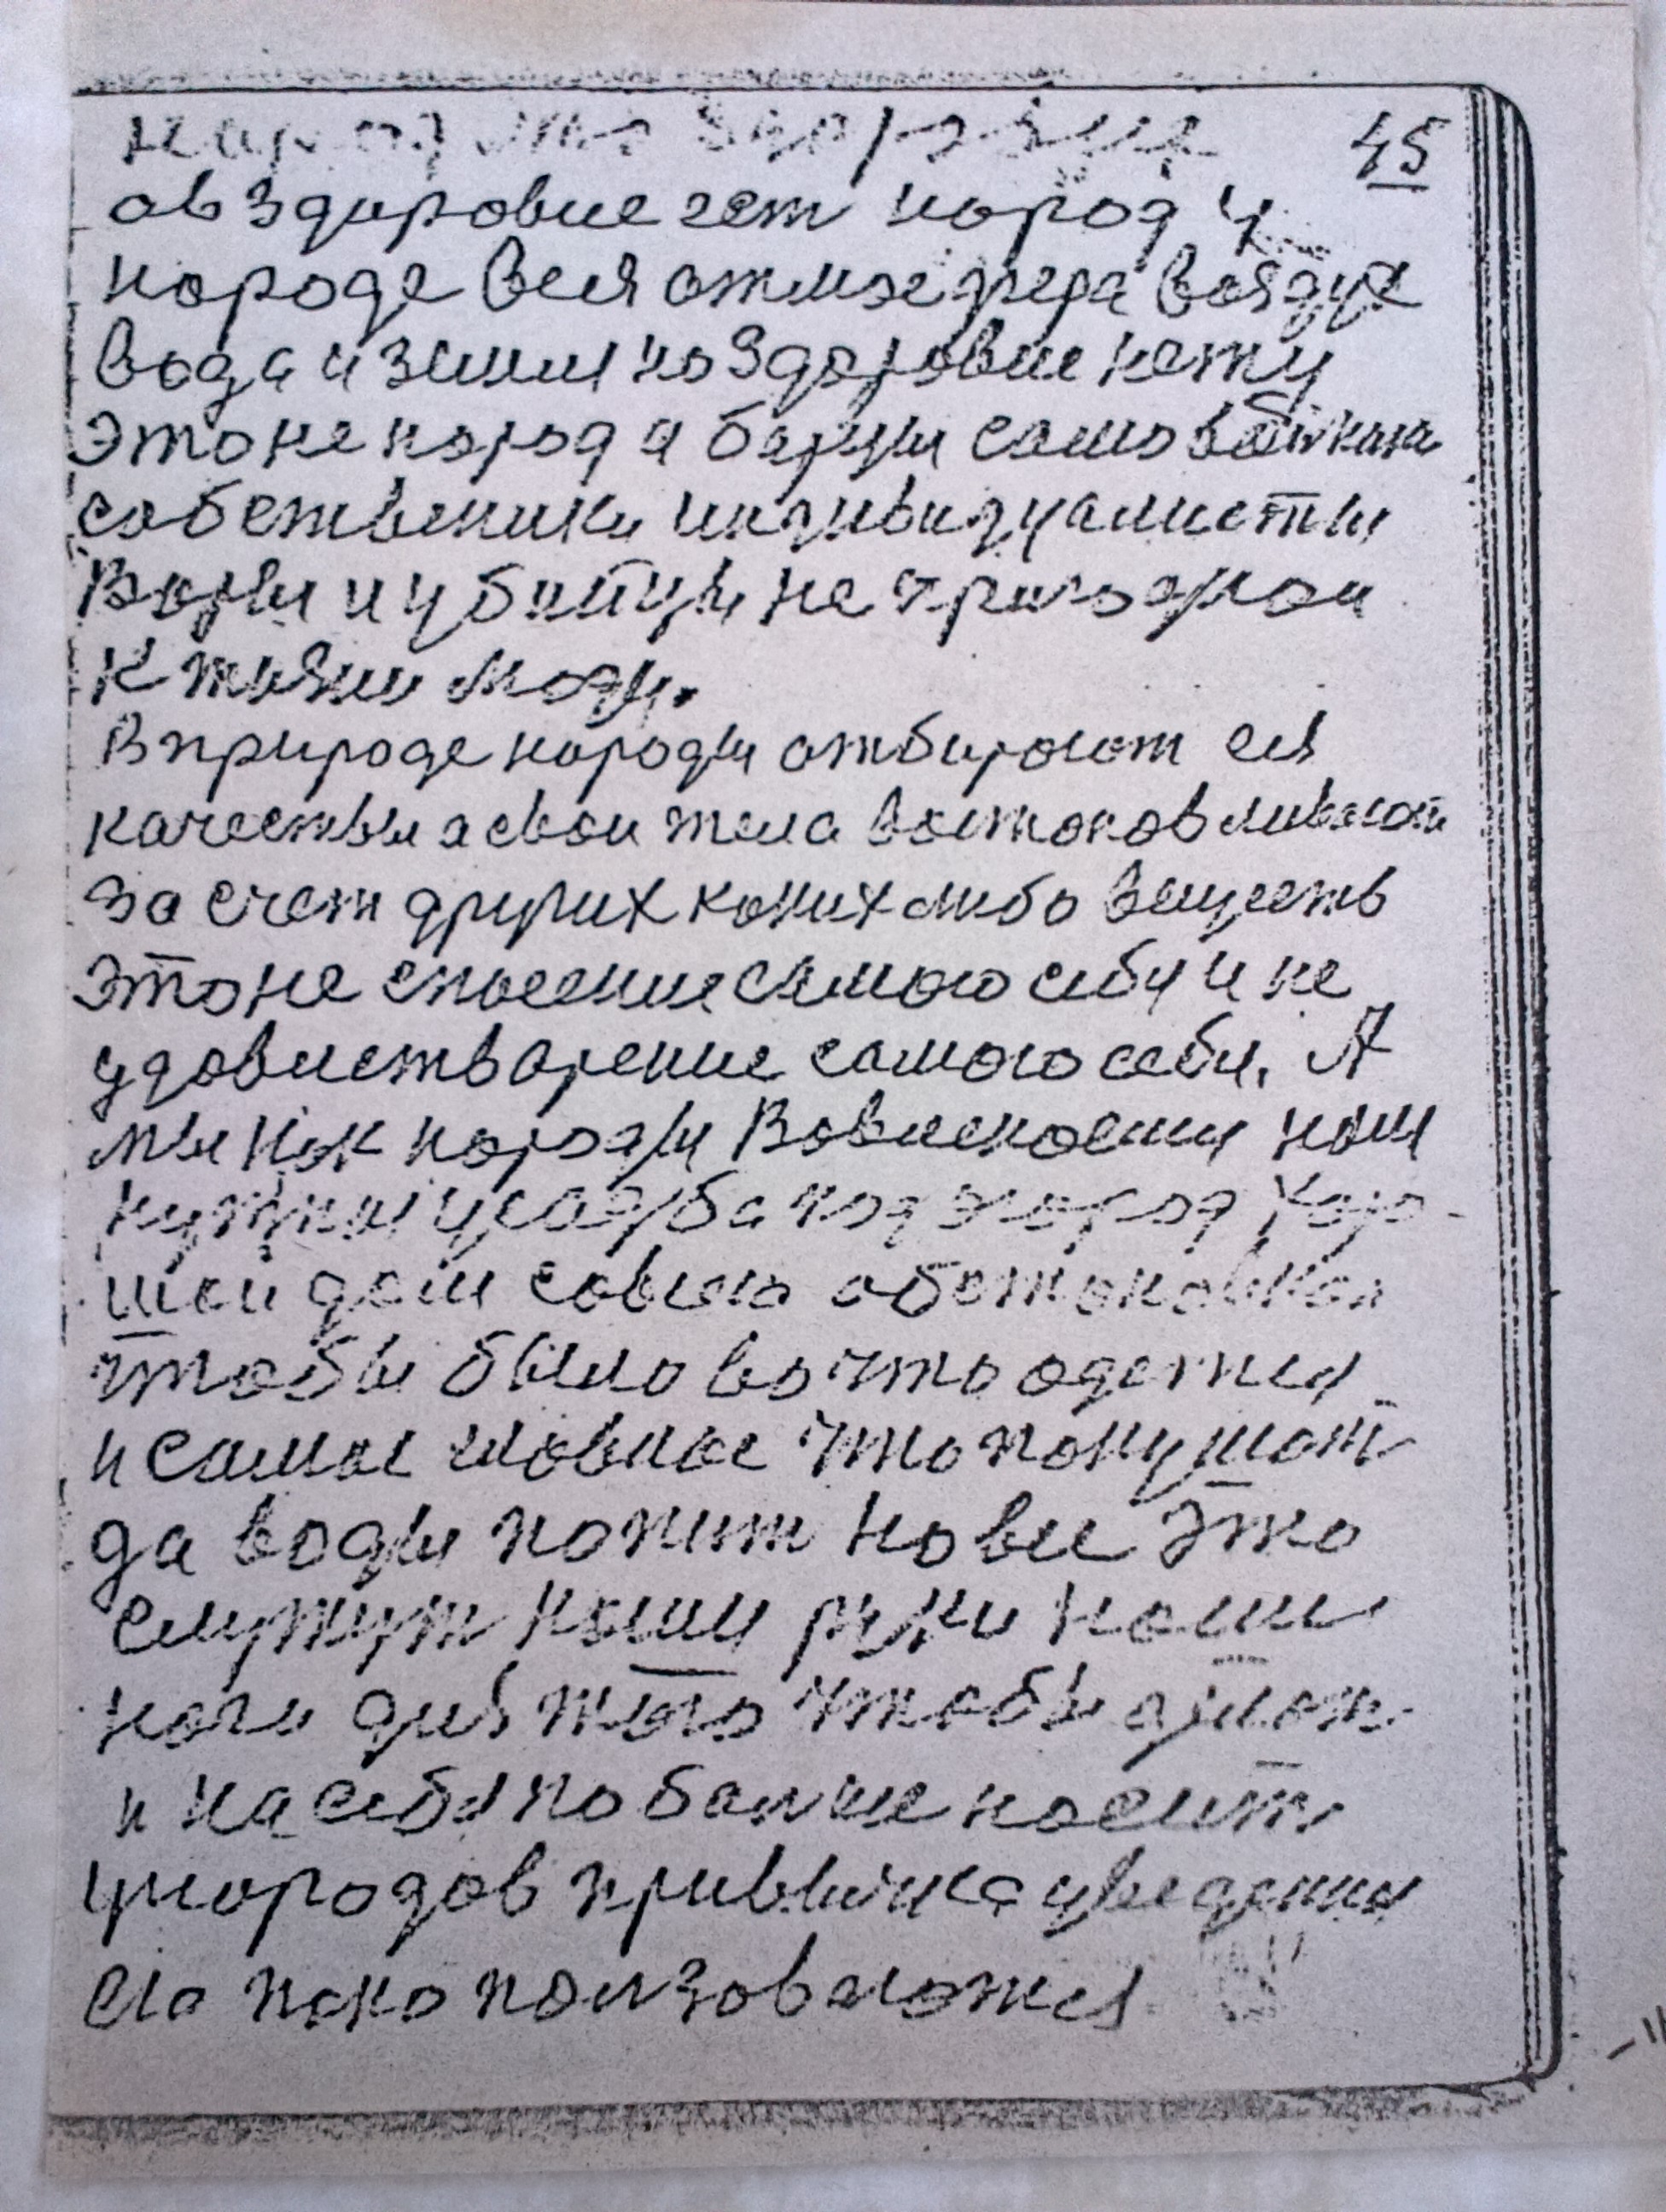 народ это 45
а в здоровие гет народ у
народе вся отмосфера воздух
вода и земля но здоровие нету
Это не народ а борцы само
собственики индивидуалисты
Воры и убийцы не пригодной
к жизни люди.
В природе народы отбирают ея
качествы а свои тела востоновливают
за счет других коких либо веществ
Это не спосение самого себя и не
удовлетворение самого себя. А
мы как народы Вовлекоеми нам
нужна усадба под огород хоро-
шой дом совсею обстоновкой
чтобы было во что одется
и самое гловное что покушат
да воды попит но все это
служут наши руки наши
ноги для того чтобы
и на себя по болше носит
у народов привычка уведении
ею пако ползоваются